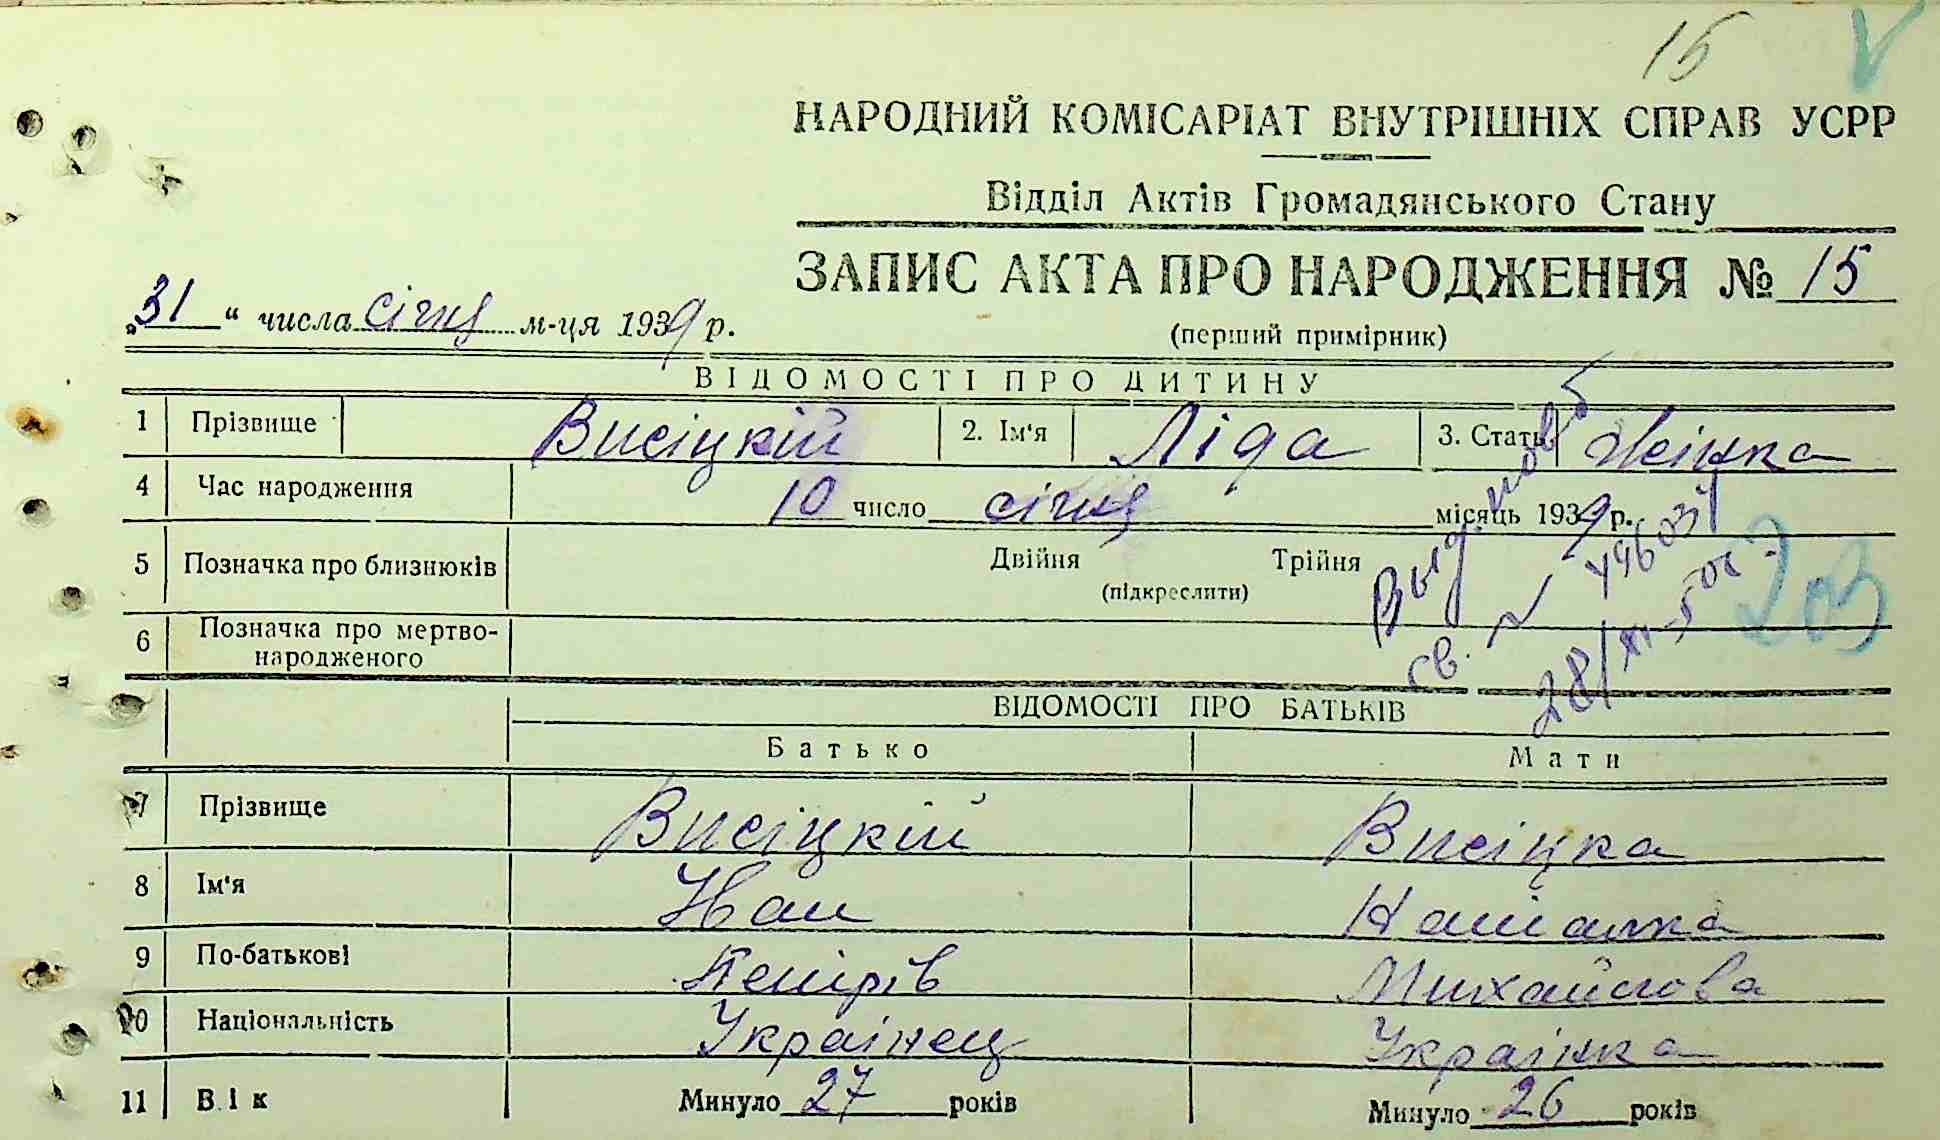 15
НАРОДНИЙ КОМІСАРІАТ ВНУТРІШНІХ СПРАВ УСРР
Відділ Актів Громадянського Стану
ЗАПИС АКТА ПРО НАРОДЖЕННЯ № 15
„31“ числа січня м-ця 1939 р.
(перший примірник)
ВІДОМОСТІ ПРО ДИТИНУ
1 Прізвище Висіцкій 2. Ім'я Ліда 3. Стать Жінка
4 Час народження 10 число січня місяць 1939 р.
5 Позначка про близнюків Двійня Трійня
(підкреслити)
6 Позначка про мертво-
народженого
Выд. пов.
св. №
203
ВІДОМОСТІ ПРО БАТЬКІВ
Батько Мати
7 Прізвище Висіцкій Висіцка
8 Ім'я Иван Наталка
9 По-батькові Петрів Михайлова
10 Національність Украінец Украінка
11 Вік Минуло 27 років Минуло 26 років